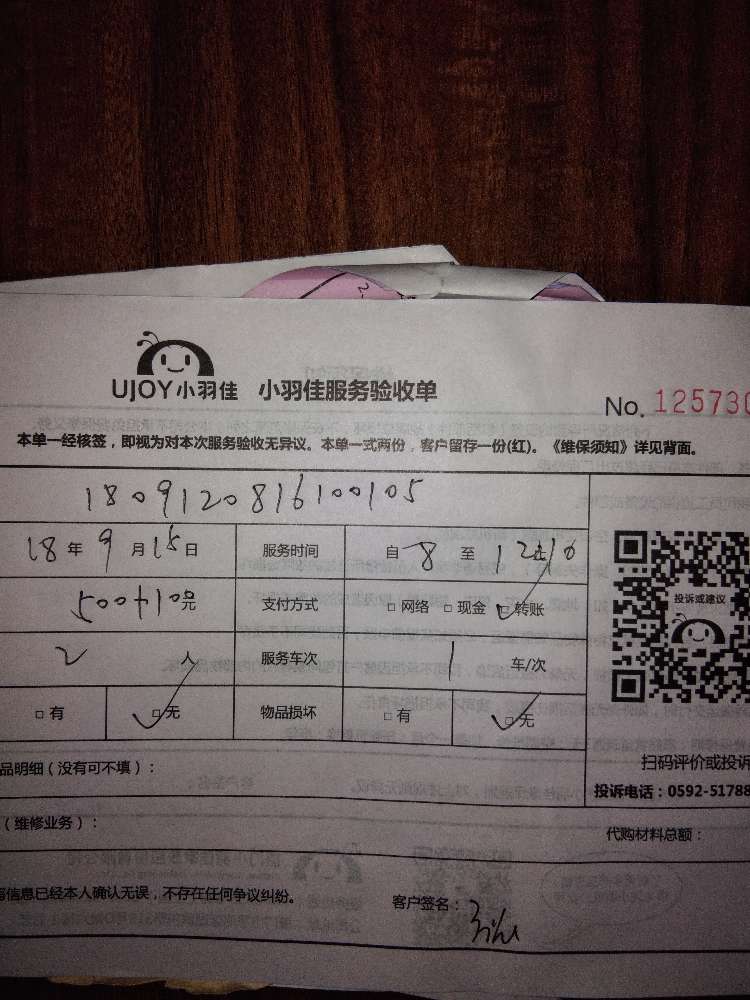 UJOY小羽佳 小羽佳服务验收单
No. 125730
本单一经核签，即视为对本次服务验收无异议。本单一式两份，客户留存一份(红)。《维保须知》详见背面。
1809120816100105
18年9月15日 服务时间 自8至12
500+10元 支付方式 □网络 □现金 □转账
投诉或建议
2人 服务车次 1车/次
□有 □无 物品损坏 □有 □无
扫码评价或投诉
品明细（没有可不填）：
投诉电话：0592-51788
（维修业务）： 代购材料总额：
信息已经本人确认无误，不存在任何争议纠纷。 客户签名：